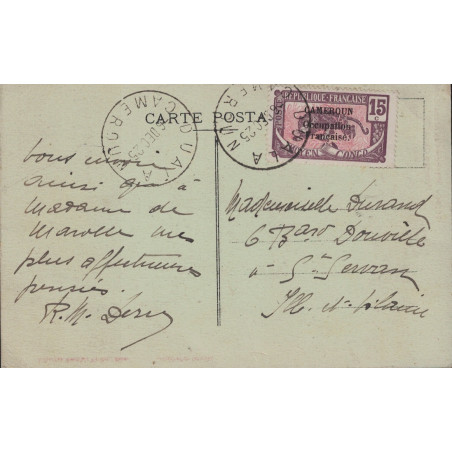 CARTE POSTA
REPUBLIQUE-FRANÇAISE
15
c
CAMEROUN
Occupation
Française
MOYEN CONGO
DOUALA
CAMEROUN
DEC 25
ainsi qu'à
Madame de
mes
plus affectueuses
pensées.
R. M.
Mademoiselle Durand
6 Bard Douville
à St Servan
Ille et Vilaine